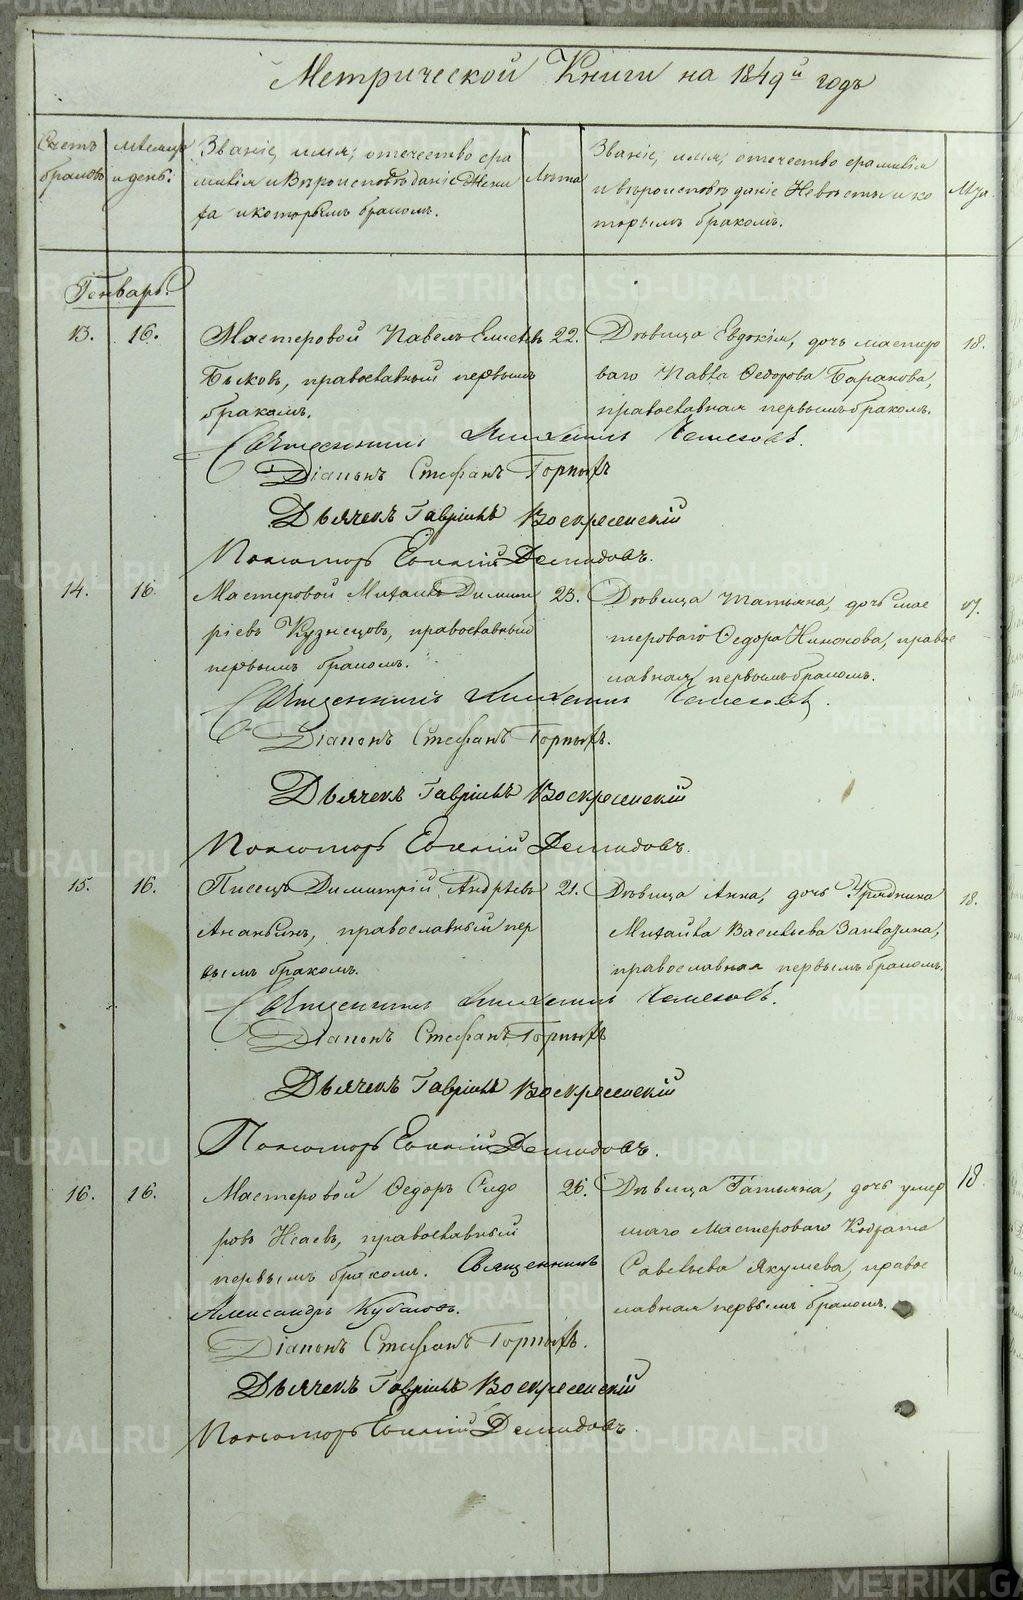 Метрической Книги на 1849й годъ
Счетъ браковъ
мѣсяцъ и день.
Званіе, имя, отечество фа
милія и Вѣроисповѣданіе Жени
ха и которымъ бракомъ.
Лѣта
Званіе, имя, отечество фамилія
и вѣроисповѣданіе Невѣсты и ко
торымъ бракомъ.
Генварь.
13. 16. Мастеровой Павелъ 22. Дѣвица Евдокія, дочь мастеро 18.
Быковъ, православный первымъ ваго Павла Ѳедорова Баранова,
бракомъ. православная первымъ бракомъ.
Священникъ
Діаконъ Стефанъ Горныхъ
Дьячекъ Гавріилъ Воскресенскій
Пономарь Евгеній Демидовъ.
14. 16. Мастеровой Михаилъ Димит 23. Дѣвица Татьяна, дочь мас
ріевъ Кузнецовъ, православный тероваго Ѳедора правос
первымъ бракомъ. лавная первымъ бракомъ.
Священникъ
Діаконъ Стефанъ Горныхъ.
Дьячекъ Гавріилъ Воскресенскій
Пономарь Евгеній Демидовъ.
15. 16. Писецъ Димитрій Андреевъ 21. Дѣвица Анна, дочь Урядника 18.
Ананьинъ, православный пер Михайла Васильева
вымъ бракомъ. православная первымъ бракомъ.
Священникъ
Діаконъ Стефанъ Горныхъ
Дьячекъ Гавріилъ Воскресенскій
Пономарь Евгеній Демидовъ.
16. 16. Мастеровой Ѳедоръ Сидо 26. Дѣвица Татьяна, дочь умер 18.
ровъ Исаевъ, православный шаго Мастероваго
первымъ бракомъ. Священникъ Савельева Якушева, правос
Александръ лавная первымъ бракомъ.
Діаконъ Стефанъ Горныхъ.
Дьячекъ Гавріилъ Воскресенскій
Пономарь Евгеній Демидовъ.
METRIKI.GASO-URAL.RU